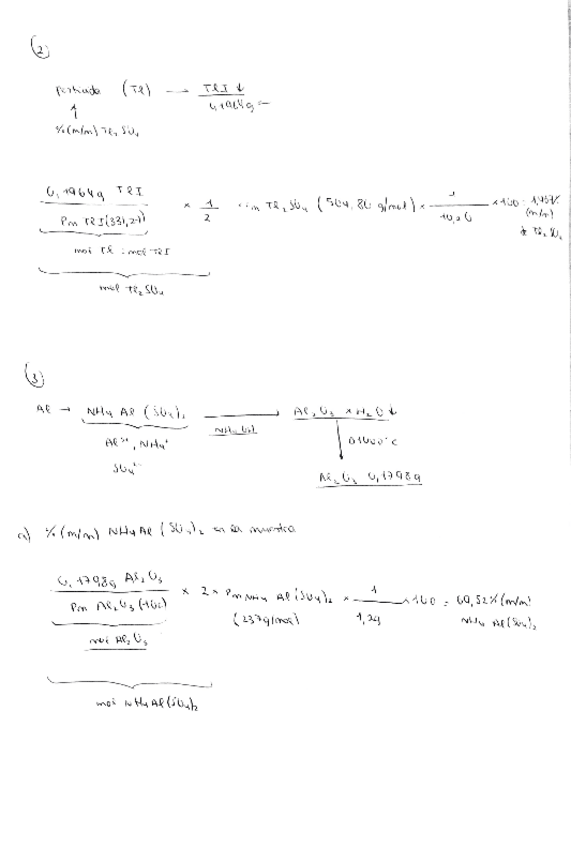 ②
pesticida (Tl) → TlI ↓
0,1964g
%(m/m) Tl₂SO₄
0,1964g TlI / Pm TlI(331,27) × 1/2 × Pm Tl₂SO₄ (504,80 g/mol) × 1/10,20 × 100 = 1,457% (m/m)
de Tl₂SO₄
mol Tl = mol TlI
mol Tl₂SO₄
③
Al → NH₄Al(SO₄)₂ → Al₂O₃ × H₂O ↓
Al³⁺, NH₄⁺
SO₄²⁻
Δ1000°C
Al₂O₃ 0,1798g
a) %(m/m) NH₄Al(SO₄)₂ en la muestra
0,1798g Al₂O₃ / Pm Al₂O₃(102) × 2 × Pm NH₄Al(SO₄)₂ (237g/mol) × 1/1,2g × 100 = 60,52%(m/m)
NH₄Al(SO₄)₂
mol Al₂O₃
mol NH₄Al(SO₄)₂